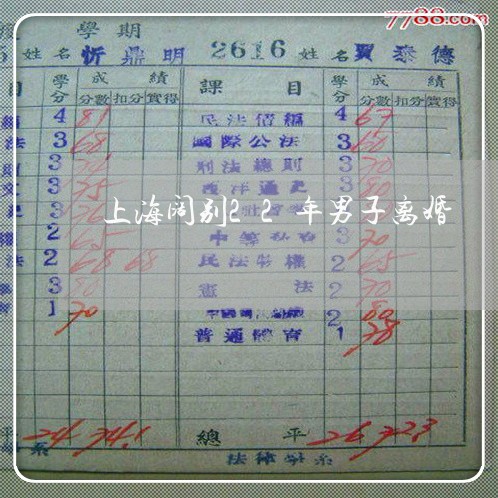 7788.com
學期
姓名 忻鼎明 2616 姓名 賈泰德
目 學分 成績 課目 學分 成績
分數 扣分 實得 分數 扣分 實得
4 81 民法債編 4 67
法 3 68 國際公法 3 60
3 刑法總則 3 70
3 75 西洋通史 3 80
上海阔别22年男子离婚
2 65 3 70
法 2 68 68 民法物權 2 65
3 80 憲法 2 70
1 70 2 80
普通體育 1 78
平 24 74.1 總平 26 72.3
系 法律學系